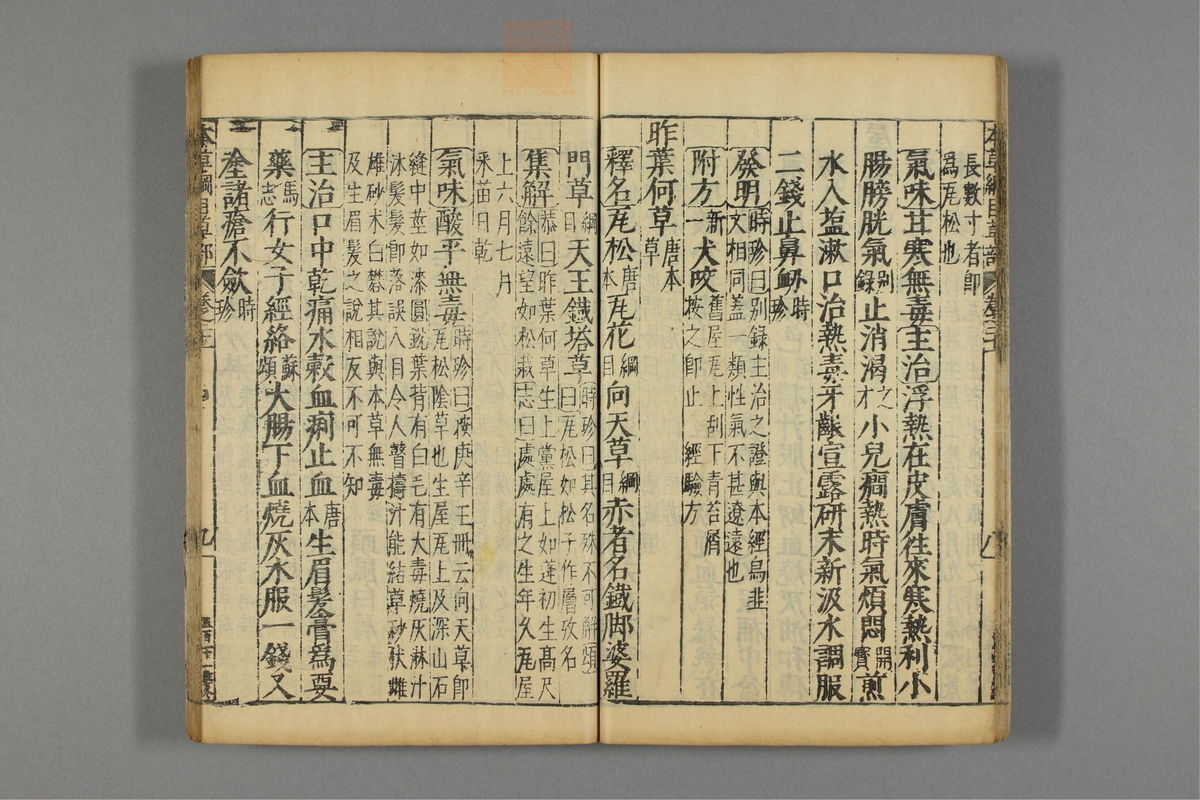 長數寸者卽
爲𤬦松也
氣味甘寒無毒主治浮熱在皮膚往來寒熱利小
腸膀胱氣别錄止消渴之才小兒癇熱時氣煩悶開寶煎
水入鹽漱口治熱毒牙齦宣露研末新汲水調服
二錢止鼻衂時珍
發明時珍曰别錄主治之證與本經烏韭
文相同蓋一類性氣不甚遼遠也
附方新一犬咬舊屋𤬦上刮下青苔屑
按之卽止 經驗方
昨葉何草唐本草
釋名𤬦松唐本𤬦花綱目向天草綱目赤者名鐵脚婆羅
門草綱目天王鐵塔草時珍曰其名殊不可解頌
曰𤬦松如松子作層故名
集解恭曰昨葉何草生上黨屋上如蓬初生高尺
餘遠望如松栽志曰處處有之生年久𤬦屋
上六月七月
采苗日乾
氣味酸平無毒時珍曰按庚辛玉冊云向天草卽
𤬦松陰草也生屋𤬦上及深山石
縫中莖如漆圓銳葉背有白毛有大毒燒灰淋汁
沐髮髮卽落誤入目令人瞽擣汁能結草砂伏雌
雄砂汞白礬其說與本草無毒
及生眉髮之說相反不可不知
主治口中乾痛水穀血痢止血唐本生眉髮膏爲要
藥馬志行女子經絡蘇頌大腸下血燒灰水服一錢又
𡍼諸瘡不斂時珍
本草綱目草部
九